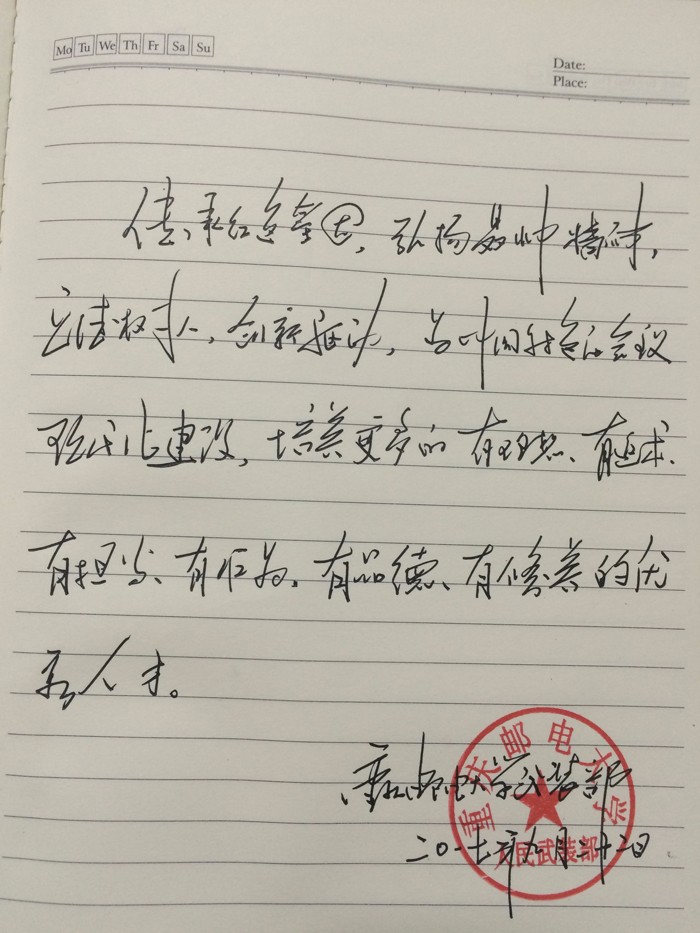 Mo Tu We Th Fr Sa Su
Date:
Place:
传承红色基因，弘扬聂帅精神，
立德树人，创新驱动，为中国特色社会主义
现代化建设，培养更多的有理想、有追求、
有担当、有作为、有品德、有修养的优
秀人才。
重庆邮电大学武装部
二〇一七年九月二十二日
重庆邮电大学
人民武装部